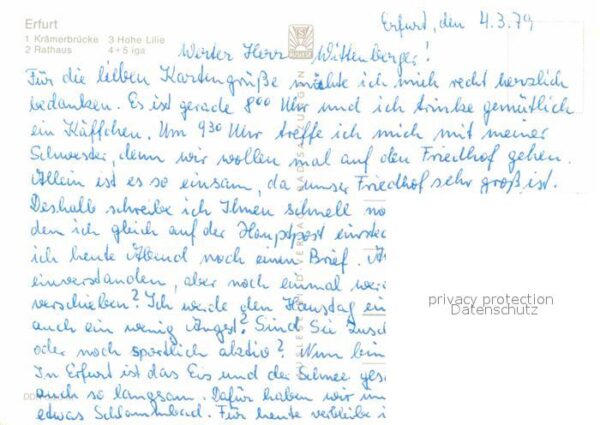 Erfurt, den 4.3.79
Erfurt
1 Krämerbrücke 3 Hohe Lilie
2 Rathaus 4+5 iga
Werter Herr Wittenberger!
Für die lieben Kartengrüße möchte ich mich recht herzlich
bedanken. Es ist gerade 8⁰⁰ Uhr und ich trinke gemütlich
ein Käffchen. Um 9³⁰ Uhr treffe ich mich mit meiner
Schwester, denn wir wollen mal auf den Friedhof gehen.
Allein ist es so einsam, da unser Friedhof sehr groß ist.
Deshalb schreibe ich Ihnen schnell no
den ich gleich auf der Hauptpost einste
ich heute Abend noch einen Brief.
einverstanden, aber noch einmal
verschieben? Ich werde den Haustag ein
auch ein wenig Angst? Sind Sie Zusc
oder noch sportlich aktiv? Nun bin
In Erfurt ist das Eis und der Schnee
auch so langsam. Dafür haben wir
etwas Schlammbad. Für heute verbleibe i
privacy protection
Datenschutz